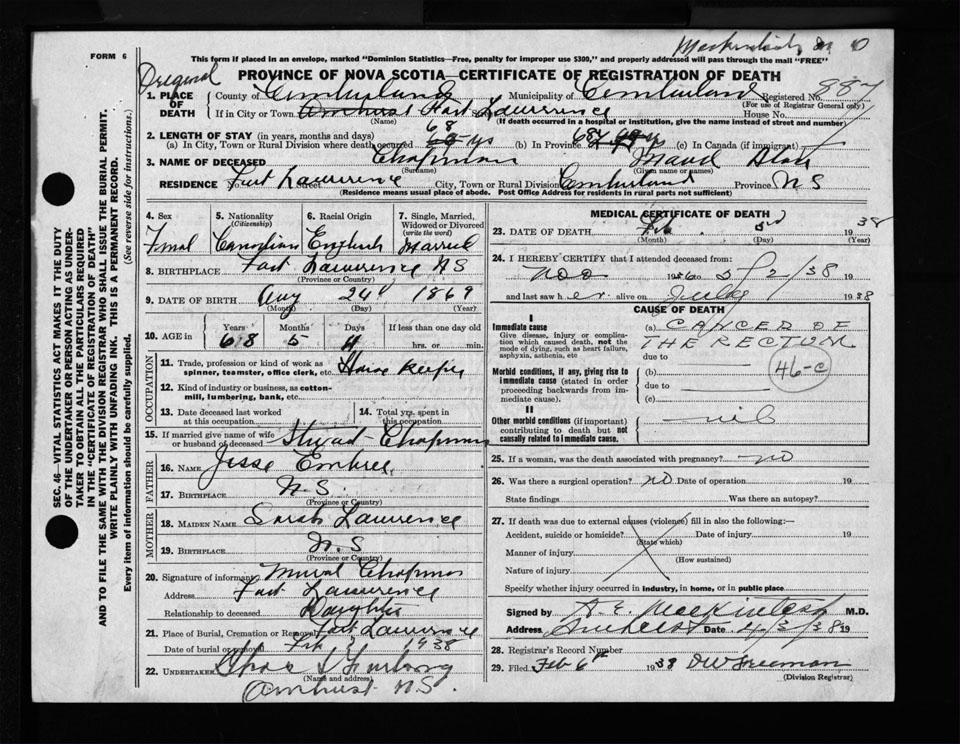 FORM 6
Original
This form if placed in an envelope, marked "Dominion Statistics—Free, penalty for improper use $300," and properly addressed will pass through the mail "FREE"
PROVINCE OF NOVA SCOTIA—CERTIFICATE OF REGISTRATION OF DEATH
1. PLACE OF DEATH
County of Cumberland Municipality of Cumberland Registered No. 887
(For use of Registrar General only)
If in City or Town Amherst Fort Lawrence House No.
(Name) (If death occurred in a hospital or institution, give the name instead of street and number)
2. LENGTH OF STAY (in years, months and days)
68
(a) In City, Town or Rural Division where death occurred yrs (b) In Province 68 y (c) In Canada (if immigrant)
3. NAME OF DECEASED Chapman Maud
(Surname) (Given name or names)
RESIDENCE Fort Lawrence Street City, Town or Rural Division Cumberland Province N S
(Residence means usual place of abode. Post Office Address for residents in rural parts not sufficient)
4. Sex
Femal
5. Nationality (Citizenship)
Canadian
6. Racial Origin
English
7. Single, Married, Widowed or Divorced (write the word)
Married
8. BIRTHPLACE Fort Lawrence N S
(Province or Country)
9. DATE OF BIRTH Aug 24 1869
(Month) (Day) (Year)
10. AGE in Years Months Days If less than one day old
68 5 hrs. or min.
OCCUPATION
11. Trade, profession or kind of work as spinner, teamster, office clerk, etc. House Keeper
12. Kind of industry or business, as cotton-mill, lumbering, bank, etc.
13. Date deceased last worked at this occupation
14. Total yrs. spent in this occupation
15. If married give name of wife or husband of deceased Chapman
FATHER
16. NAME Jesse Embree
17. BIRTHPLACE N. S.
(Province or Country)
MOTHER
18. MAIDEN NAME Sarah Lawrence
19. BIRTHPLACE N. S
(Province or Country)
20. Signature of informant Chapman
Address Fort Lawrence
Relationship to deceased Daughter
21. Place of Burial, Cremation or Removal Fort Lawrence
Date of burial or removal Feb 1938
22. UNDERTAKER
(Name and address)
Amherst N.S.
MEDICAL CERTIFICATE OF DEATH
23. DATE OF DEATH Feb 1938
(Month) (Day) (Year)
24. I HEREBY CERTIFY that I attended deceased from:
Nov 19 /2/38 19
and last saw her alive on 1938
CAUSE OF DEATH
I
Immediate cause
Give disease, injury or complication which caused death, not the mode of dying, such as heart failure, asphyxia, asthenia, etc
(a) CANCER OF
THE RECTUM
due to
46-C
Morbid conditions, if any, giving rise to immediate cause (stated in order proceeding backwards from immediate cause).
(b)
due to
(c)
II
Other morbid conditions (if important) contributing to death but not causally related to immediate cause.
nil
25. If a woman, was the death associated with pregnancy? no
26. Was there a surgical operation? no Date of operation 19
State findings Was there an autopsy?
27. If death was due to external causes (violence) fill in also the following:—
Accident, suicide or homicide? Date of injury 19
(State which)
Manner of injury
(How sustained)
Nature of injury
Specify whether injury occurred in industry, in home, or in public place
Signed by A. E. Mackintosh M.D.
Address Amherst Date 4/3/38 19
28. Registrar's Record Number
29. Filed Feb 6th 1938 DW Freeman
(Division Registrar)
SEC. 46—VITAL STATISTICS ACT MAKES IT THE DUTY
OF THE UNDERTAKER OR PERSON ACTING AS UNDER-
TAKER TO OBTAIN ALL THE PARTICULARS REQUIRED
IN THE "CERTIFICATE OF REGISTRATION OF DEATH"
AND TO FILE THE SAME WITH THE DIVISION REGISTRAR WHO SHALL ISSUE THE BURIAL PERMIT.
WRITE PLAINLY WITH UNFADING INK. THIS IS A PERMANENT RECORD.
Every item of information should be carefully supplied. (See reverse side for instructions.)